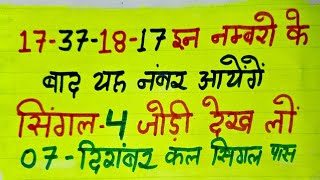 17-37-18-17 इन नम्बरो के
बाद यह नंबर आयेगें
सिंगल-4 जोड़ी देख लों
07-दिशंबर कल सिगल पास